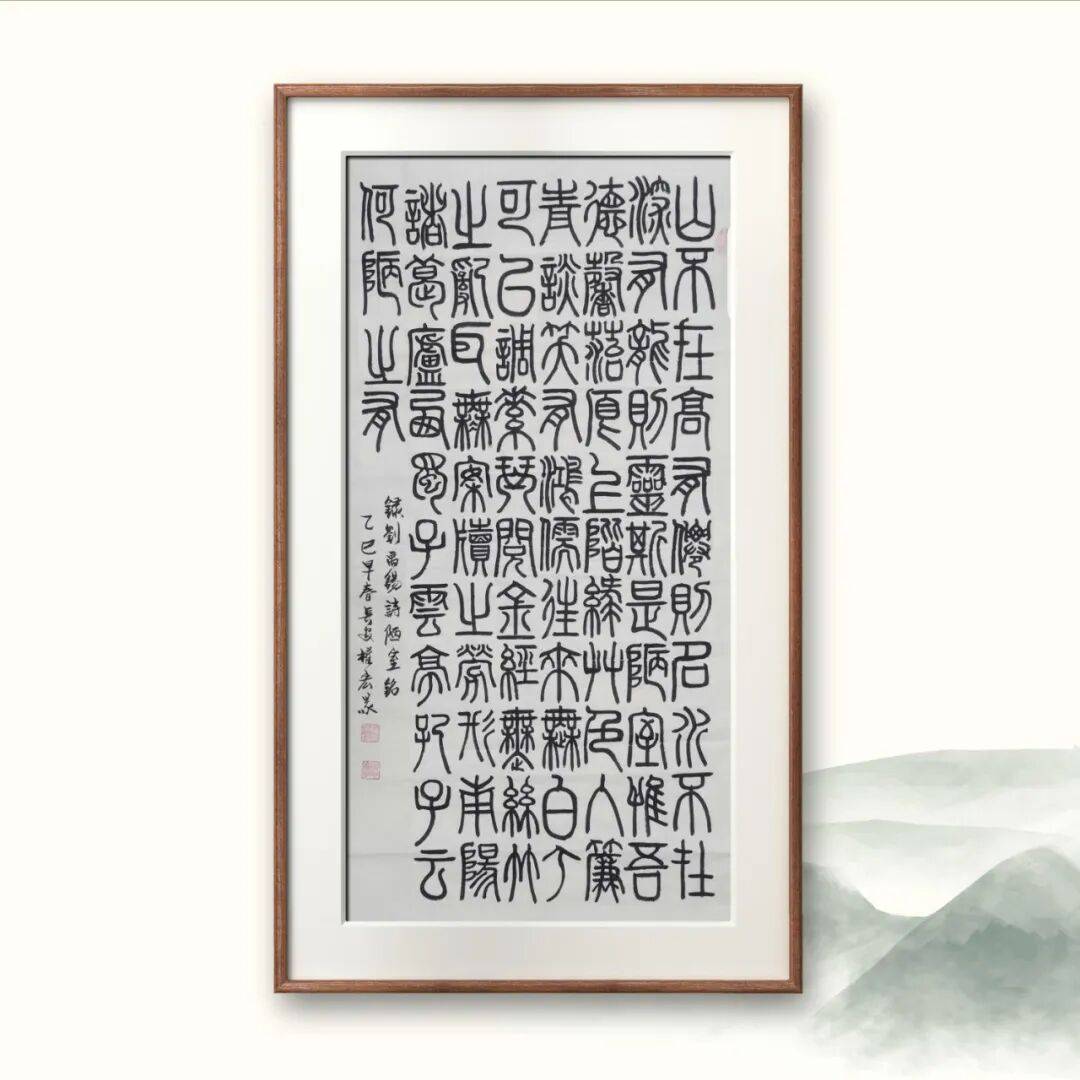 山不在高有僊則名水不在
深有龍則靈斯是陋室惟吾
德馨菭痕上階綠艸色入簾
青談笑有鴻儒往來無白丁
可以調素琴閱金經無絲竹
之亂耳無案牘之勞形南陽
諸葛廬西蜀子雲亭孔子云
何陋之有
錄劉禹錫詩陋室銘
乙巳早春長安權宏